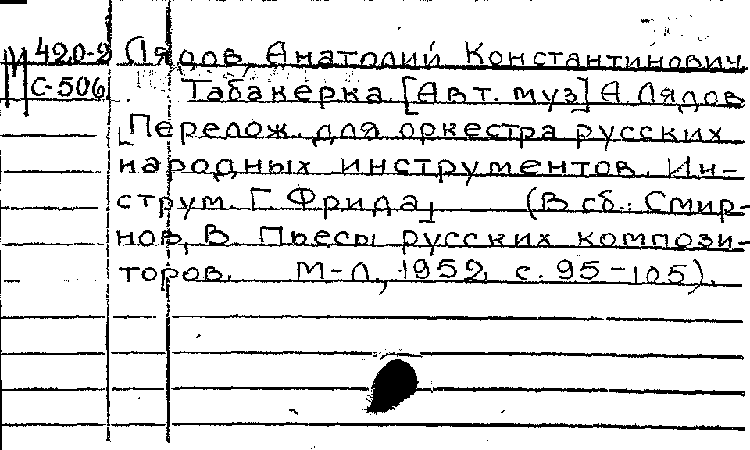 М 420-2 Лядов, Анатолий Константинович.
С-506 Табакерка. [Авт. муз] А Лядов
[Перелож. для оркестра русских
народных инструментов. Ин-
струм. Г. Фрида] (В сб.: Смир-
нов, В. Пьесы русских компози-
торов. М-Л, 1952, с. 95-105).